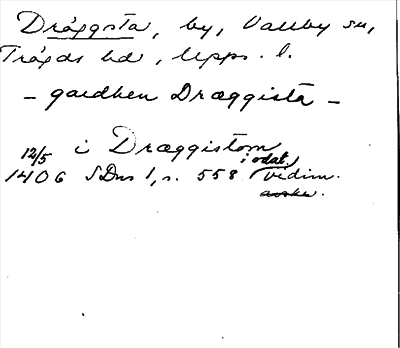 Dräggsta, by, Vallby sn,
Trögds hd, Upps. l.
- gardhen Dræggista -
i Dræggistom
12/5 i odat.
1406 SDns 1, s. 558 vidim.